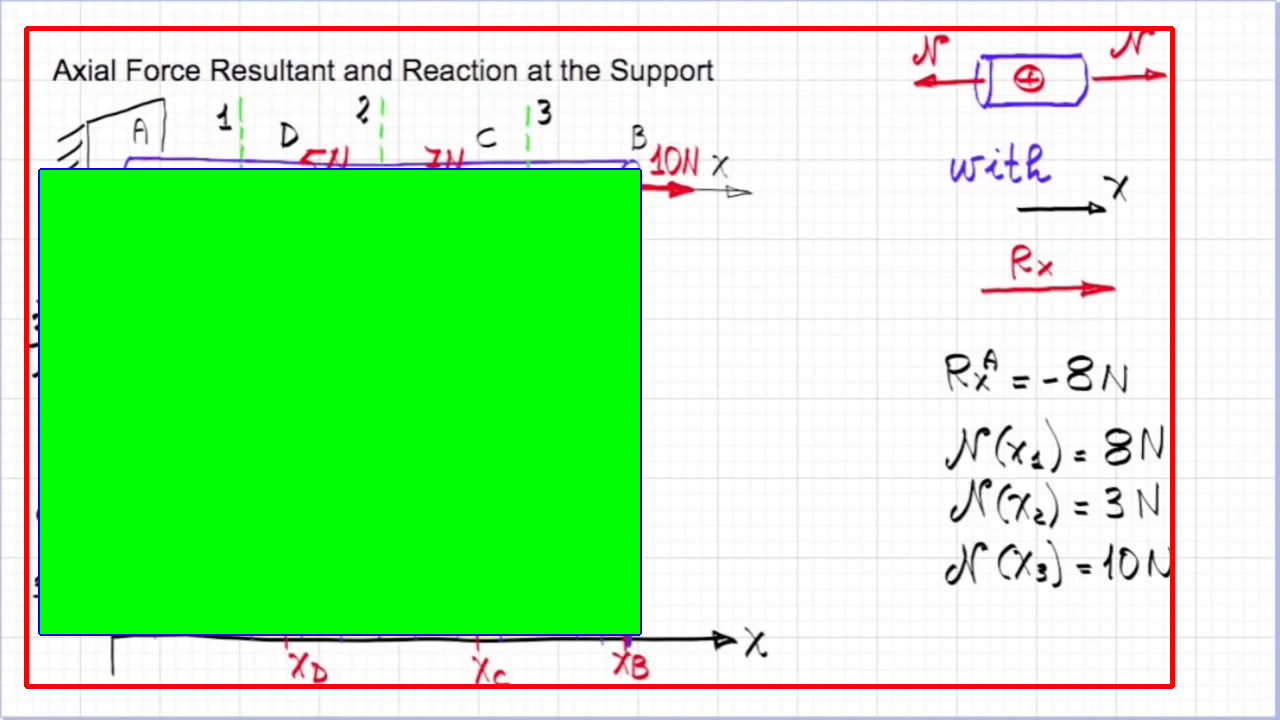 Axial Force Resultant and Reaction at the Support
N N
+
1 2 3
A D C B
5N 7N 10N X
with
X
Rx
RxA = -8N
N(x1) = 8N
N(x2) = 3N
N(x3) = 10N
X
xD xC xB